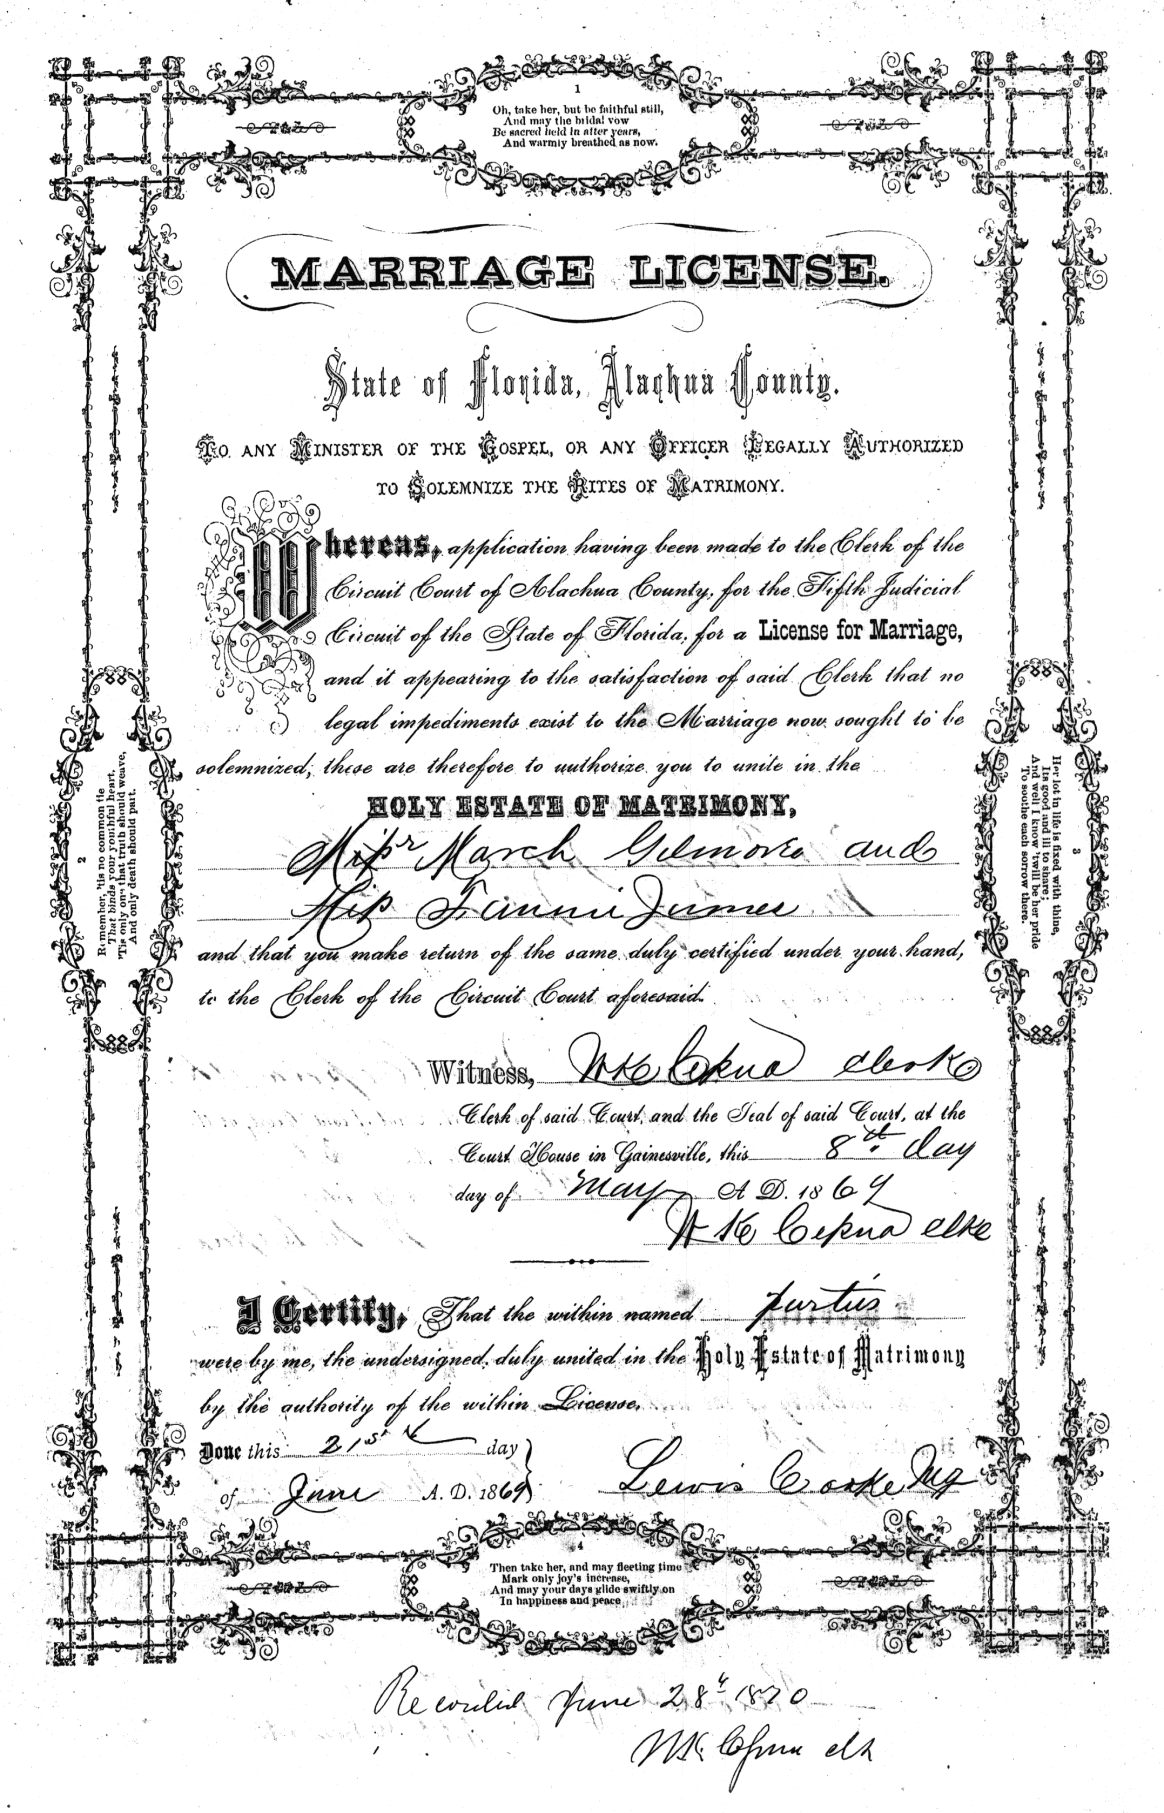 1
Oh, take her, but be faithful still,
And may the bridal vow
Be sacred held in after years,
And warmly breathed as now.
MARRIAGE LICENSE.
State of Florida, Alachua County.
TO ANY MINISTER OF THE GOSPEL, OR ANY OFFICER LEGALLY AUTHORIZED
TO SOLEMNIZE THE RITES OF MATRIMONY.
Whereas, application having been made to the Clerk of the
Circuit Court of Alachua County, for the Fifth Judicial
Circuit of the State of Florida, for a License for Marriage,
and it appearing to the satisfaction of said Clerk that no
legal impediments exist to the Marriage now sought to be
solemnized, these are therefore to authorize you to unite in the
HOLY ESTATE OF MATRIMONY,
March Gilmore and
Miss Fannie
and that you make return of the same duly certified under your hand,
to the Clerk of the Circuit Court aforesaid.
2
Remember, 'tis no common tie
That binds your youthful heart,
'Tis one only that truth should weave,
And only death should part.
3
Her lot in life is fixed with thine,
Its good and ill to share;
And well I know 'twill be her pride
To soothe each sorrow there.
Witness,
Clerk of said Court, and the Seal of said Court, at the
Court House in Gainesville, this 8th day
day of May A. D. 1869
I Certify, That the within named parties
were by me, the undersigned, duly united in the Holy Estate of Matrimony
by the authority of the within License.
Done this 21st day
of June A. D. 1869
Lewis Cooke
4
Then take her, and may fleeting time
Mark only joy's increase,
And may your days glide swiftly on
In happiness and peace.
Recorded June 28th 1870